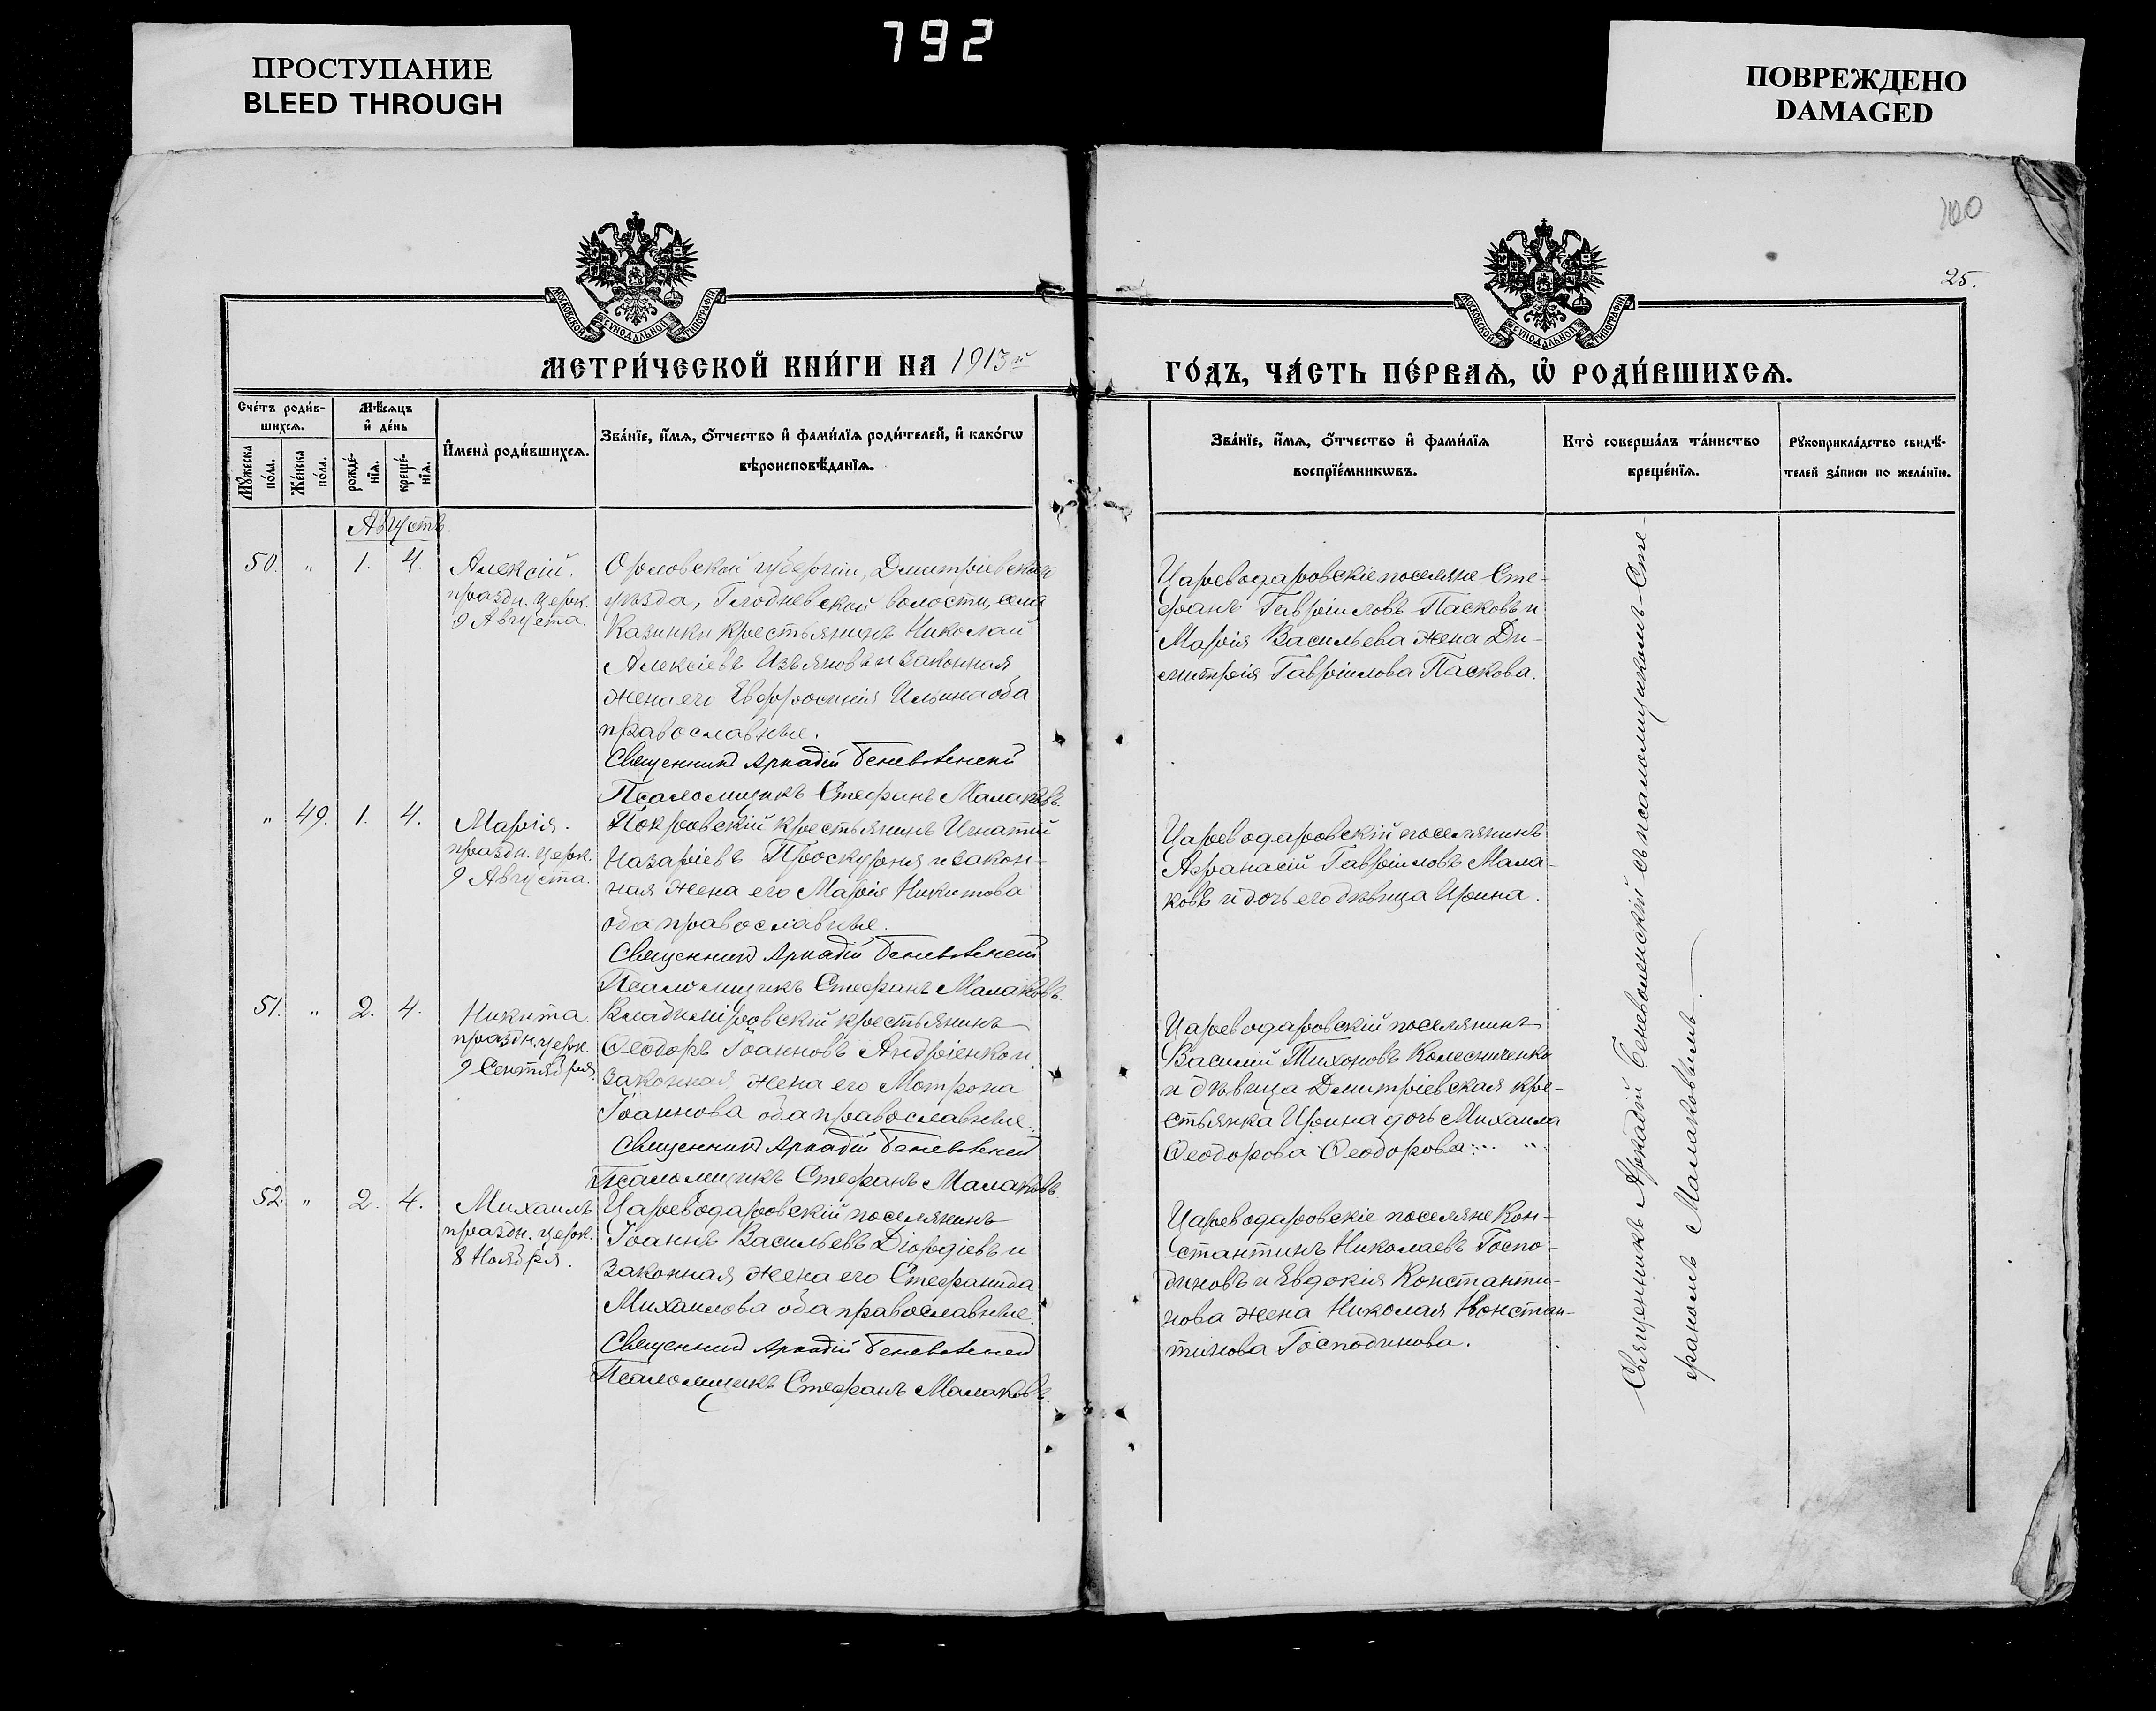 792
ПРОСТУПАНИЕ
BLEED THROUGH
ПОВРЕЖДЕНО
DAMAGED
100
25.
МОСКОВСКОЙ СѴНОДАЛЬНОЙ ТИПОГРАФІИ
МОСКОВСКОЙ СѴНОДАЛЬНОЙ ТИПОГРАФІИ
МЕТРИ́ЧЕСКОЙ КНИ́ГИ НА 1913й
ГО́ДЪ, ЧА́СТЬ ПЕ́РВАѦ, Ѡ҆ РОДИ́ВШИХСѦ.
Сче́тъ роди́в-
шихсѧ.
Мѣ́сѧцъ
и҆ де́нь
Мꙋ́жеска
по́ла.
Же́нска
по́ла.
рожде́-
нїѧ.
креще́-
нїѧ.
И҆мена̀ роди́вшихсѧ.
Зва́нїе, и҆́мѧ, ѻ҆́тчество и҆ фами́лїѧ роди́телей, и҆ како́гѡ
вѣроисповѣ́данїѧ.
Зва́нїе, и҆́мѧ, ѻ҆́тчество и҆ фами́лїѧ
воспрїе́мникѡвъ.
Кто̀ соверша́лъ та́инство
креще́нїѧ.
Рꙋкоприкла́дство свидѣ́-
телей за́писи по жела́нїю.
Августъ
50. " 1. 4.
Алексій.
праздн. церк.
9 Августа.
Орловской губерніи, Дмитріевскаго
уѣзда, Глодневской волости, села
Казинки крестьянинъ Николай
Алексіевъ Изъяновъ и законная
жена его Евфросинія Ильина оба
православные.
Священникъ Аркадій Беневоленскій
Псаломщикъ Стефанъ Малаковъ.
Цареводаровскіе поселяне Сте-
фанъ Гавріиловъ Пасковъ и
Марія Васильева жена Ди-
митрія Гавріилова Паскова.
" 49. 1. 4.
Марія.
праздн. церк.
9 Августа.
Покровскій крестьянинъ Игнатій
Назаріевъ Проскурня и закон-
ная жена его Марія Никитова
оба православные.
Священникъ Аркадій Беневоленскій
Псаломщикъ Стефанъ Малаковъ.
Цареводаровскій поселянинъ
Афанасій Гавріиловъ Мала-
ковъ и дочь его дѣвица Ирина.
51. " 2. 4.
Никита.
праздн. церк.
9 Сентября.
Владиміровскій крестьянинъ
Ѳеодоръ Іоанновъ Андріенко и
законная жена его Мотрона
Іоаннова оба православные.
Священникъ Аркадій Беневоленскій
Псаломщикъ Стефанъ Малаковъ.
Цареводаровскій поселянинъ
Василій Тихоновъ Колесниченко
и дѣвица Дмитріевская кре-
стьянка Ирина дочь Михаила
Ѳеодорова Ѳеодорова
52. " 2. 4.
Михаилъ
праздн. церк.
8 Ноября.
Цареводаровскій поселянинъ
Іоаннъ Васильевъ Діордіевъ и
законная жена его Стефанида
Михаилова оба православные.
Священникъ Аркадій Беневоленскій
Псаломщикъ Стефанъ Малаковъ.
Цареводаровскіе поселяне Кон-
стантинъ Николаевъ Госпо-
диновъ и Евдокія Константи-
нова жена Николая Констан-
тинова Господинова.
Священникъ Аркадій Беневоленскій съ псаломщикомъ Сте-
фаномъ Малаковымъ.